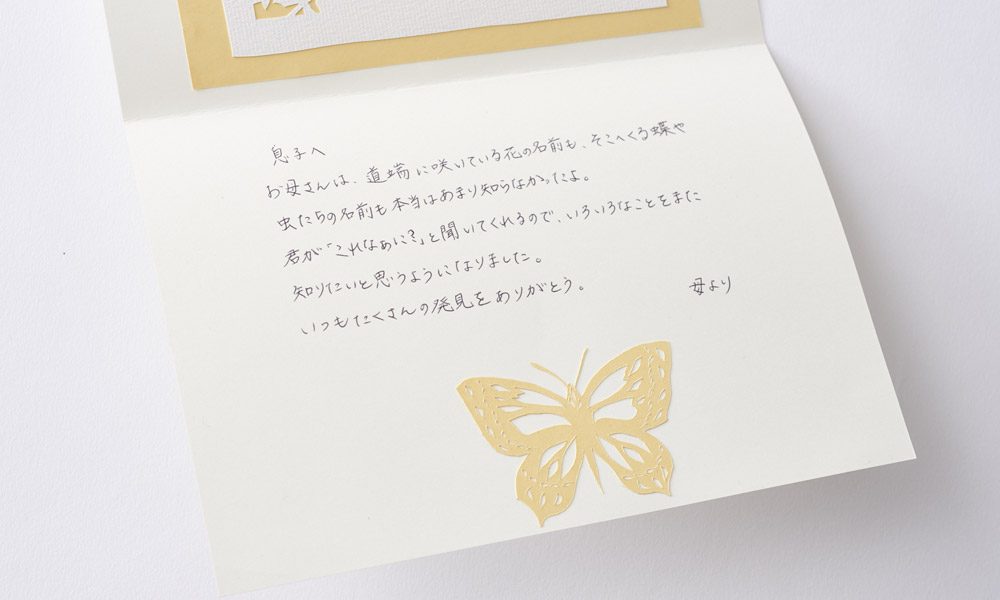 息子へ
お母さんは、道端に咲いている花の名前も、そこへくる蝶や
虫たちの名前も本当はあまり知らなかったよ。
君が「これなあに？」と聞いてくれるので、いろいろなことをまた
知りたいと思うようになりました。
いつもたくさんの発見をありがとう。
母より